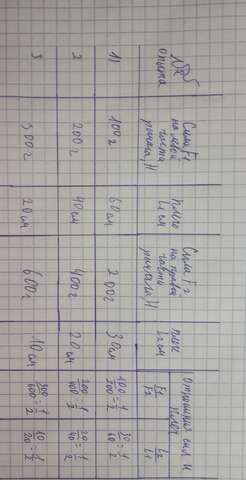 № опыта
Сила F1 на левой части рычага, Н
Плечо L1 см
Сила F2 на правой части рычага, Н
плечо L2 см
Отношения сил и плеч
F1/F2
L2/L1
1)
100г
60см
200г
30см
100/200 = 1/2
30/60 = 1/2
2
200г
40см
400г
20см
200/400 = 1/2
20/40 = 1/2
3
300г
20см
600г
10см
300/600 = 1/2
10/20 = 1/2